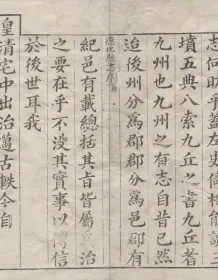 志何昉乎蓋左史倚相能讀
墳五典八索九丘之書九丘者
九州也九州之有志自昔已然
迨後州分爲郡郡分爲邑郡有
紀邑有載總括其旨皆屬爲治
之要在乎不没其實事以傳信
於後世耳我
皇清宅中出治邁古軼今自